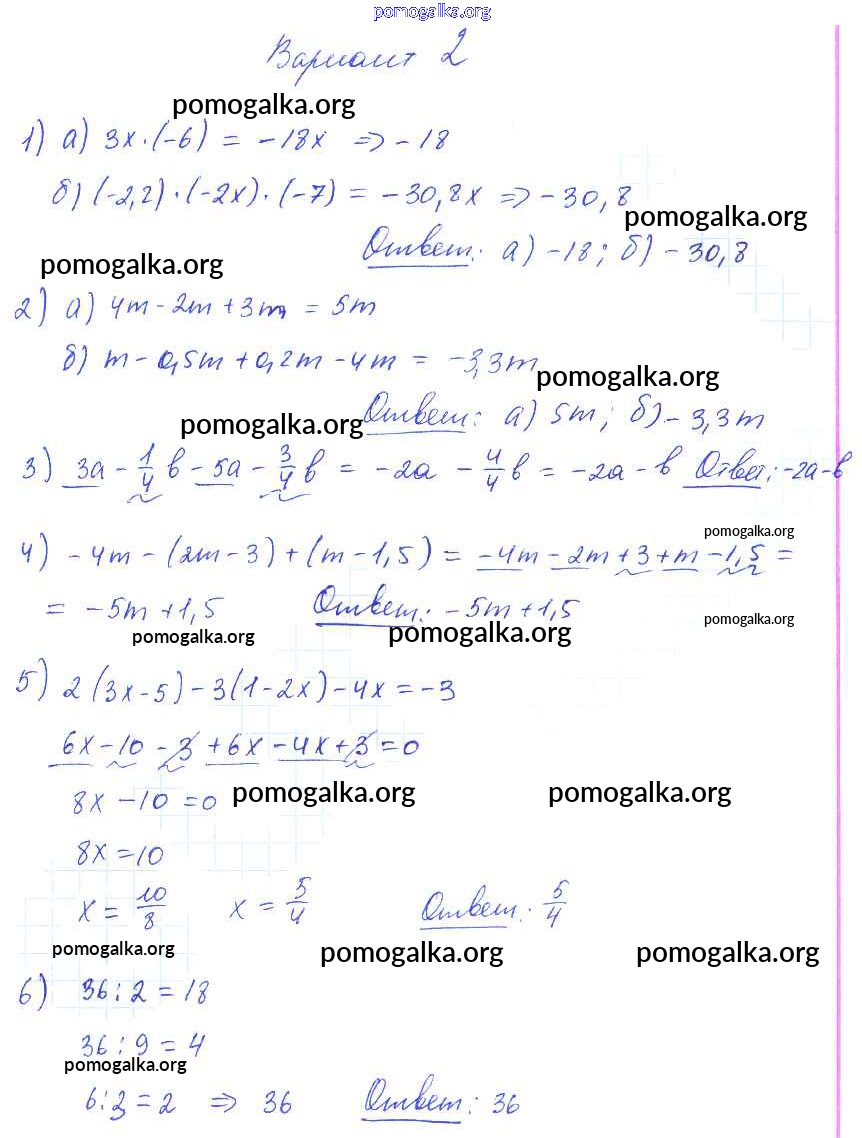 pomogalka.org
Вариант 2
pomogalka.org
1) а) 3x·(-6) = -18x => -18
б) (-2,2)·(-2x)·(-7) = -30,8x => -30,8
pomogalka.org
Ответ: а) -18; б) -30,8
pomogalka.org
2) а) 4m - 2m + 3m = 5m
б) m - 0,5m + 0,2m - 4m = -3,3m
pomogalka.org
Ответ: а) 5m; б) -3,3m
pomogalka.org
3) 3a - 1/4 b - 5a - 3/4 b = -2a - 4/4 b = -2a - b Ответ: -2a-b
pomogalka.org
4) -4m - (2m - 3) + (m - 1,5) = -4m - 2m + 3 + m - 1,5 =
= -5m + 1,5 Ответ: -5m + 1,5
pomogalka.org
pomogalka.org pomogalka.org
5) 2(3x-5) - 3(1-2x) - 4x = -3
6x - 10 - 3 + 6x - 4x + 3 = 0
8x - 10 = 0
pomogalka.org pomogalka.org
8x = 10
x = 10/8 x = 5/4 Ответ: 5/4
pomogalka.org pomogalka.org pomogalka.org
6) 36 : 2 = 18
36 : 9 = 4
pomogalka.org
6 : 3 = 2 => 36 Ответ: 36